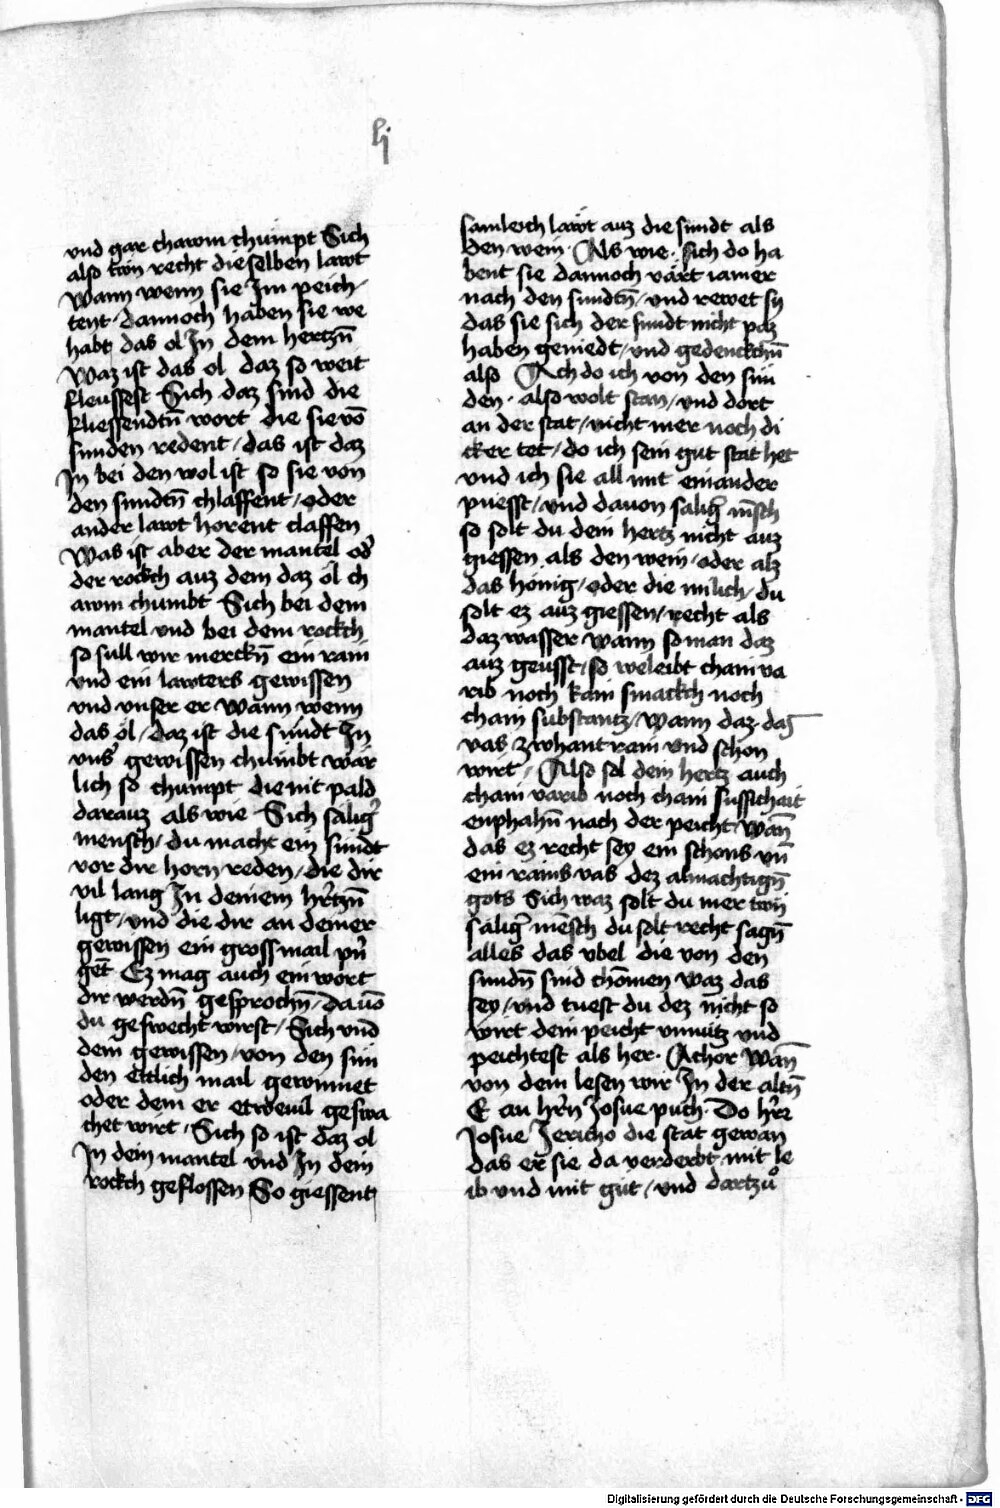 lj
vnd gar chawm chumpt Sich
also twn recht die selben lawt
Wann wenn sie Im peich
tent / dannoch haben sie we
habt das ol In dem hertzn̄
Waz ist das ol daz so weit
fleussest Sich daz sind die
fliessendtn̄ wort die sie vō
sunden redent / das ist daz
In bei den wol ist so sie von
den sundtn̄ chlaffent / oder
ander lawt horent claffen
Was ist aber der mantel od̉
der rockch auz dem daz öl ch
awm chumbt Sich bei dem
mantel vnd bei dem rockch
so sull wir merckn̄ ein rain
vnd ein lawters gewissen
vnd vnser er Wann wenn
das öl / daz ist die sundt In
vns̉ gewissen chumbt wär
lich so chumpt die nit pald
darauz als wie Sich sälig̉
mensch / du macht ein sundt
vor dir horn reden / die dir
vil lang In deinem hr̄tzn̄
ligt / vnd die dir an deiner
gewissen ein gross mail pri
get̄ Ez mag auch ein wort
dir werdn̄ gesprochn̄ / dauō
du geswecht wirst / Sich vnd
dem gewissen / von den sun
den etlich mail gewinnet
oder dem er etweuil geswa
chet wirt / Sich so ist daz ol
In dein mantel vnd In dein
rockch geflossen So giessent
samleich lawt auz die sundt als
den wein · Als wie · sich do ha
bent sie dannoch värt iamer
nach den sundtn̄ / vnd rewet sy
das sie sich der sundt nicht paz
haben geniedt / vnd gedenckchn̄
also Ach do ich von den sun
den · also wolt stan / vnd dort
an der stat / nicht mer noch di
cker tet / do ich sein gut stat het
vnd ich sie all mit einander
puesst / vnd dauon salig̉ mēsch
so solt du dein hertz nicht auz
giessen als den wein / oder alz
das hönig / oder die milich / du
solt ez auz giessen / recht als
daz wasser wann so man daz
auz geusst / so weleibt cham va
rib noch kain smackch noch
cham substantz / Wann daz daz
vas zwhant rain vnd schon
wirt / Also sol dein hertz auch
cham varib noch cham sussichait
enphahn̄ nach der peicht / Wan̄
das ez recht sey ein schons vn̄
ein rains vas dez almachtign̄
gots Sich waz solt du mer twn
sälig̉ mēsch du solt recht sagn̄
alles das vbel die von den
sundn̄ sind chōmen waz das
sey / vnd tuest du dez nicht so
wirt dein peicht vnnutz vnd
peichtest als her · Achor Wan̄
von dem lesen wir In der altn̄
E an hr̄n Josue puch · Do hr̄r
Josue Jericho die stat gewan
das er sie da verderbt mit le
ib vnd mit gut / vnd dartzů